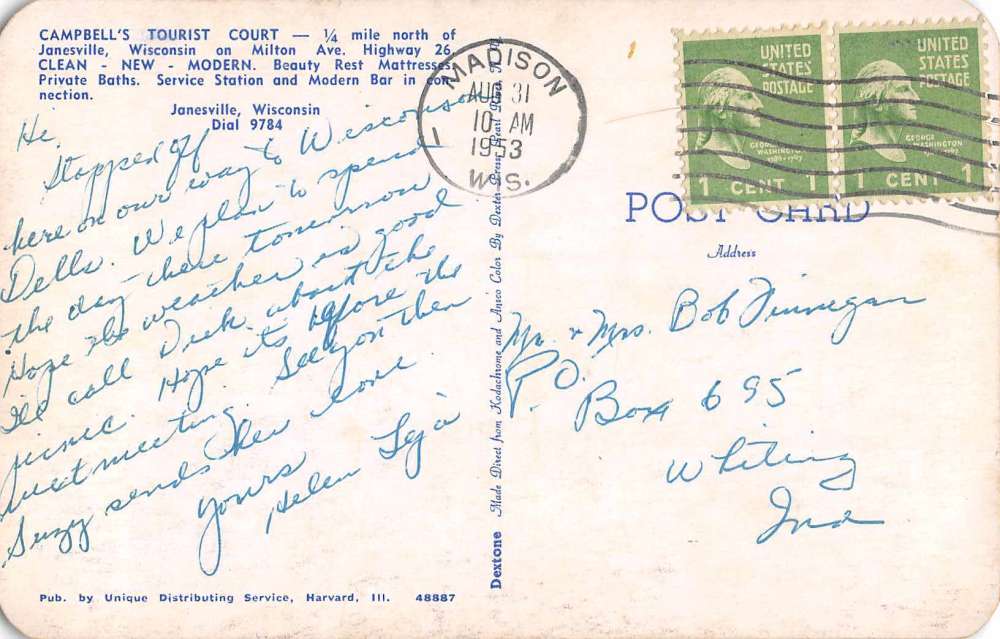 CAMPBELL'S TOURIST COURT — ¼ mile north of
Janesville, Wisconsin on Milton Ave. Highway 26,
CLEAN - NEW - MODERN. Beauty Rest Mattresses,
Private Baths. Service Station and Modern Bar in con-
nection.
Janesville, Wisconsin
Dial 9784
Hi,
Stopped off
here on our way to Wisconsin
Dells. We plan to spend
the day there tomorrow
Hope the weather is good
I'll call Dick about the
picnic. Hope it's before the
next meeting. See you then
Suzy sends her love
Yours
Helen
Pub. by Unique Distributing Service, Harvard, Ill. 48887
Dextone Made Direct from Kodachrome and Ansco Color By Dexter Press, Pearl River, N.Y.
MADISON
AUG 31
10 AM
1953
1
WIS.
UNITED
STATES
POSTAGE
GEORGE
WASHINGTON
1789-1797
1 CENT 1
UNITED
STATES
POSTAGE
GEORGE
WASHINGTON
1 CENT 1
POST CARD
Address
Mr. + Mrs. Bob Finnegan
P.O. Box 695
Whiting
Ind